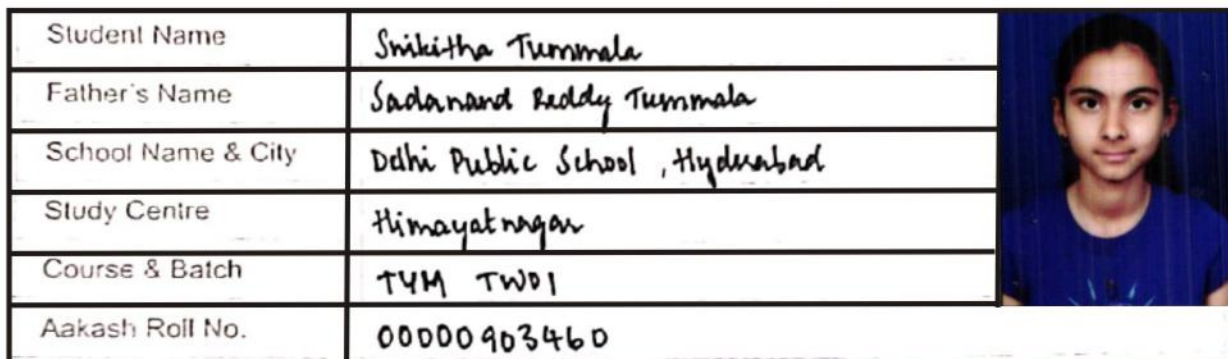 Student Name Snikitha Tummala
Father's Name Sadanand Reddy Tummala
School Name & City Delhi Public School, Hyderabad
Study Centre Himayatnagar
Course & Batch TYM TW01
Aakash Roll No. 00000903460